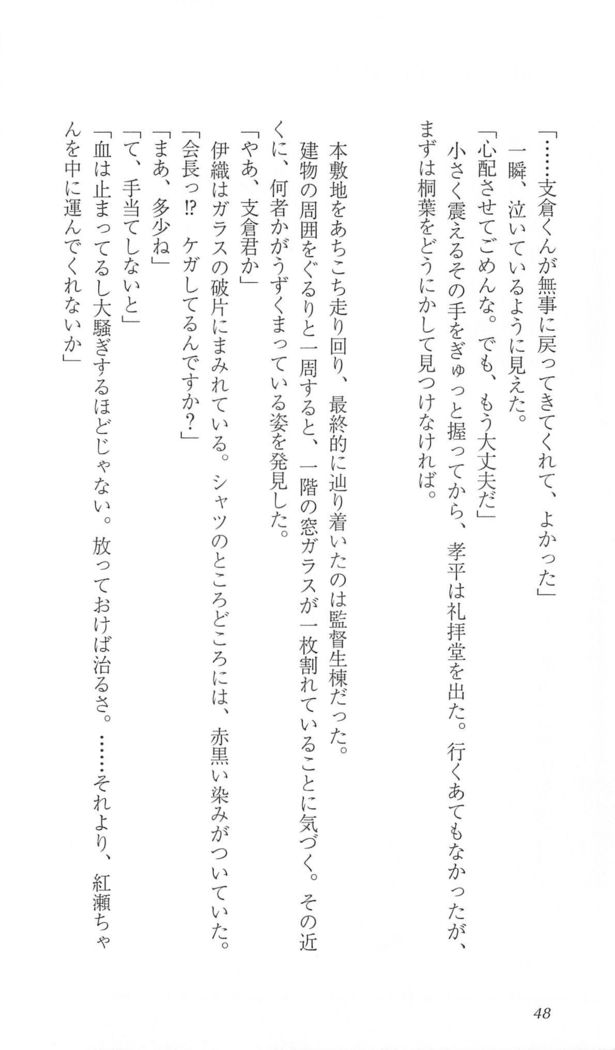 「……支倉くんが無事に戻ってきてくれて、よかった」
一瞬、泣いているように見えた。
「心配させてごめんな。でも、もう大丈夫だ」
小さく震えるその手をぎゅっと握ってから、孝平は礼拝堂を出た。行くあてもなかったが、
まずは桐葉をどうにかして見つけなければ。
本敷地をあちこち走り回り、最終的に辿り着いたのは監督生棟だった。
建物の周囲をぐるりと一周すると、一階の窓ガラスが一枚割れていることに気づく。その近
くに、何者かがうずくまっている姿を発見した。
「やあ、支倉君か」
伊織はガラスの破片にまみれている。シャツのところどころには、赤黒い染みがついていた。
「会長っ!? ケガしてるんですか?」
「まあ、多少ね」
「て、手当てしないと」
「血は止まってるし大騒ぎするほどじゃない。放っておけば治るさ。……それより、紅瀬ちゃ
んを中に運んでくれないか」
48